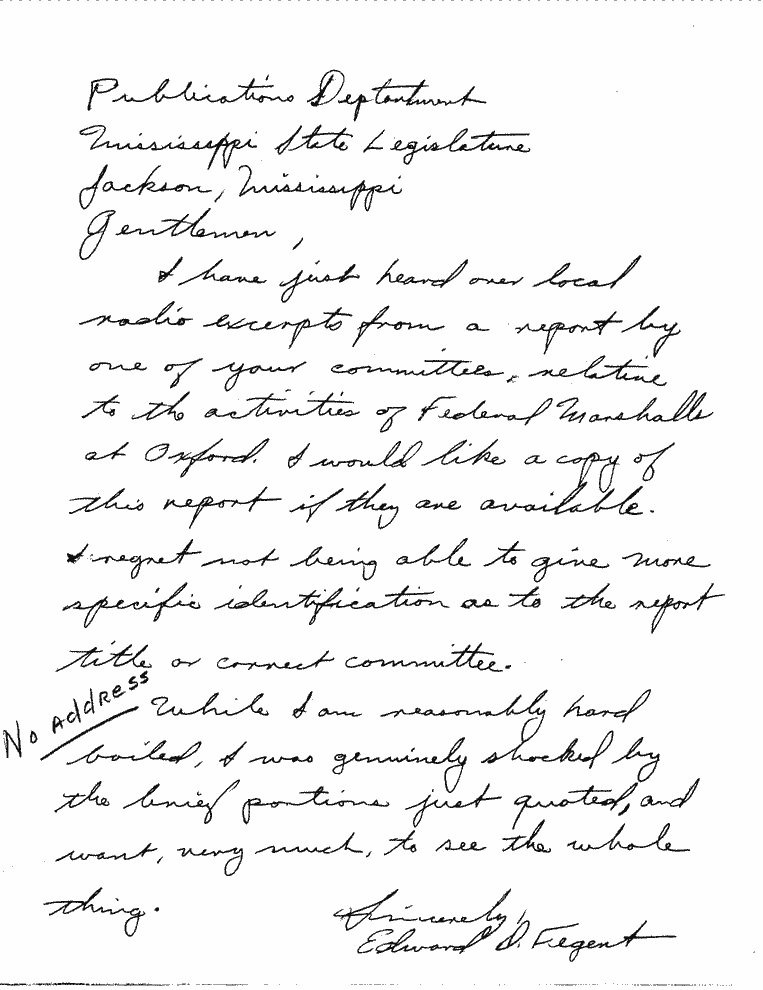 Publications Deptartment
Mississippi State Legislature
Jackson, Mississippi
Gentlemen,
I have just heard over local
radio excerpts from a report by
one of your committees, relative
to the activities of Federal Marshalls
at Oxford. I would like a copy of
this report if they are available.
I regret not being able to give more
specific identification as to the report
title or correct committee.
No Address
While I am reasonably hard
boiled, I was genuinely shocked by
the brief portions just quoted, and
want, very much, to see the whole
thing.
Sincerely,
Edward D. Fegent